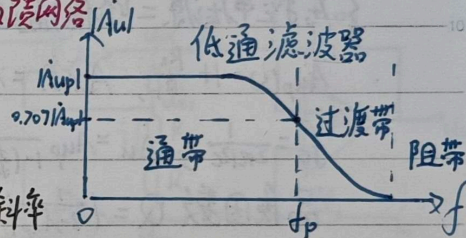 馈网络
|Au|
低通滤波器
|Aup|
0.707|Aup|
过渡带
通带
阻带
斜率
0
fp
f
10